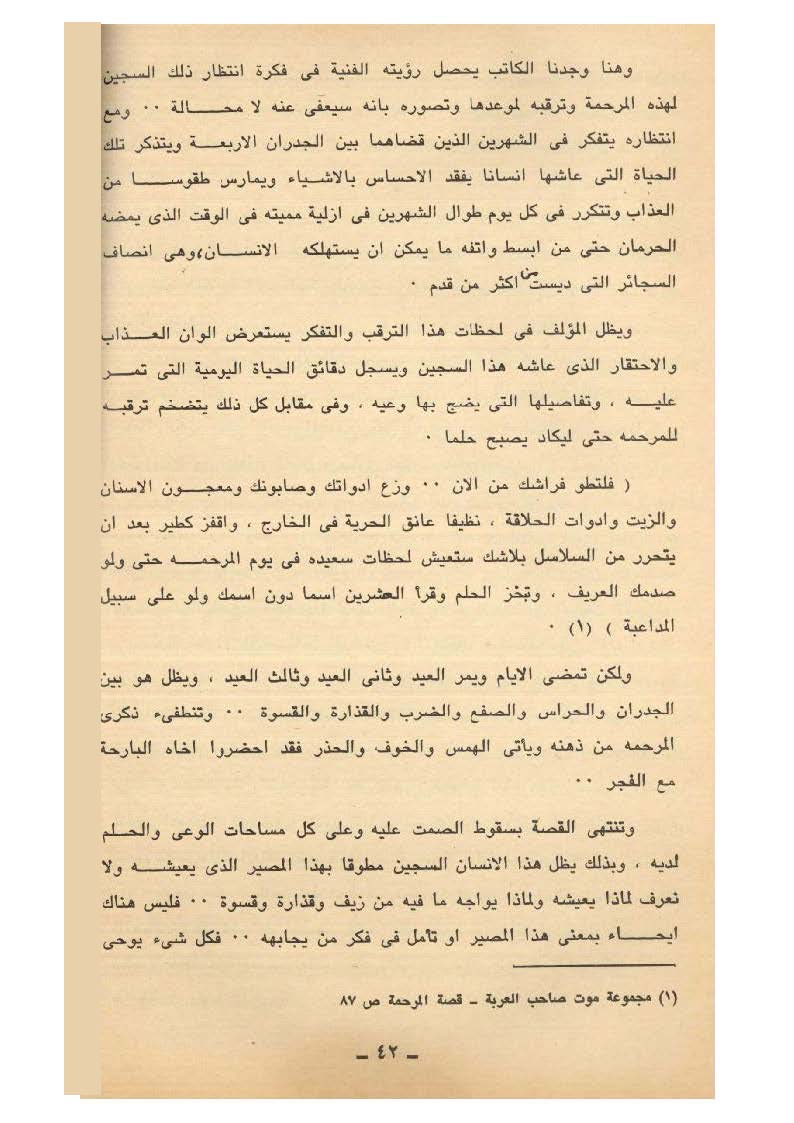 وهنا وجدنا الكاتب يحصل رؤيته الفنية فى فكرة انتظار ذلك السجين
لهذه المرحمة وترقبه لموعدها وتصوره بانه سيعفى عنه لا محالة ٠٠ ومع
انتظاره يتفكر فى الشهرين الذين قضاهما بين الجدران الاربعة ويتذكر تلك
الحياة التى عاشها انسانا يفقد الاحساس بالاشياء ويمارس طقوسا من
العذاب وتتكرر فى كل يوم طوال الشهرين فى ازلية مميته فى الوقت الذى يمضه
الحرمان حتى من ابسط واتفه ما يمكن ان يستهلكه الانسان،وهى انصاف
السجائر التى ديست من اكثر من قدم ٠
ويظل المؤلف فى لحظات هذا الترقب والتفكر يستعرض الوان العذاب
والاحتقار الذى عاشه هذا السجين ويسجل دقائق الحياة اليومية التى تمر
عليه ، وتفاصيلها التى يضج بها وعيه ، وفى مقابل كل ذلك يتضخم ترقبه
للمرحمه حتى ليكاد يصبح حلما ٠
( فلتطو فراشك من الان ٠٠ وزع ادواتك وصابونك ومعجون الاسنان
والزيت وادوات الحلاقة ، نظيفا عانق الحرية فى الخارج ، واقفز كطير بعد ان
يتحرر من السلاسل بلاشك ستعيش لحظات سعيده فى يوم المرحمه حتى ولو
صدمك العريف ، وتبخر الحلم وقرأ العشرين اسما دون اسمك ولو على سبيل
المداعبة ) (١) ٠
ولكن تمضى الايام ويمر العيد وثانى العيد وثالث العيد ، ويظل هو بين
الجدران والحراس والصفع والضرب والقذارة والقسوة ٠٠ وتنطفىء ذكرى
المرحمه من ذهنه ويأتى الهمس والخوف والحذر فقد احضروا اخاه البارحة
مع الفجر ٠٠
وتنتهى القصة بسقوط الصمت عليه وعلى كل مساحات الوعى والحلم
لديه ، وبذلك يظل هذا الانسان السجين مطوقا بهذا المصير الذى يعيشه ولا
نعرف لماذا يعيشه ولماذا يواجه ما فيه من زيف وقذارة وقسوة ٠٠ فليس هناك
ايحاء بمعنى هذا المصير او تأمل فى فكر من يجابهه ٠٠ فكل شىء يوحى
(١) مجموعة موت صاحب العربة ـ قصة المرحمة ص ٨٧
ـ ٤٢ ـ